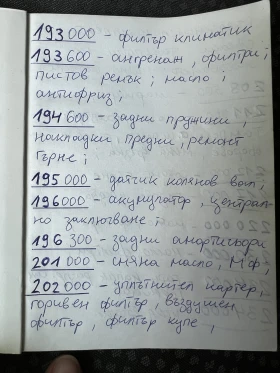 193 000 - филтър климатик
193 600 - ангренаж, филтри;
пистов ремък; масло;
антифриз;
194 600 - задни пружини;
накладки предни; ремонт
гърне;
195 000 - датчик колянов вал;
196000 - акумулатор, централ-
но заключване;
196 300 - задни амортисьори
201 000 - смяна масло, МФ;
202 000 - уплътнител картер,
горивен филтър, въздушен
филтър, филтър купе,